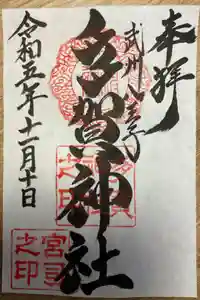 奉拝
武州八王子
多賀神社
令和五年十一月十日
宮司之印